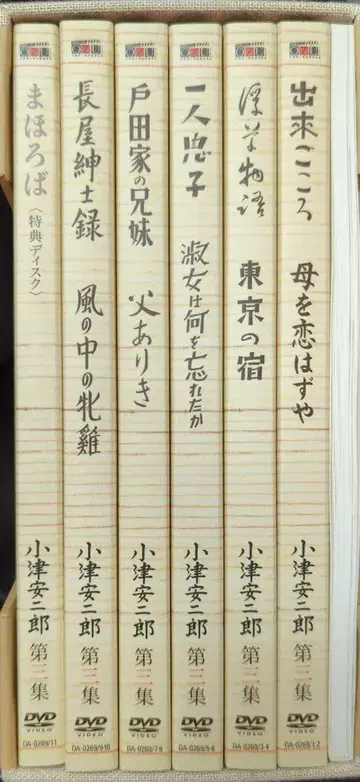 出来ごころ
母を恋はずや
小津安二郎
第三集
DVD
VIDEO
DA-0269/1·2
浮草物語
東京の宿
小津安二郎
第三集
DVD
VIDEO
DA-0269/3·4
一人息子
淑女は何を忘れたか
小津安二郎
第三集
DVD
VIDEO
DA-0269/5·6
戸田家の兄妹
父ありき
小津安二郎
第三集
DVD
VIDEO
DA-0269/7·8
長屋紳士録
風の中の牝雞
小津安二郎
第三集
DVD
VIDEO
DA-0269/9·10
まほろば
〈特典ディスク〉
小津安二郎
第三集
DVD
VIDEO
DA-0269/11